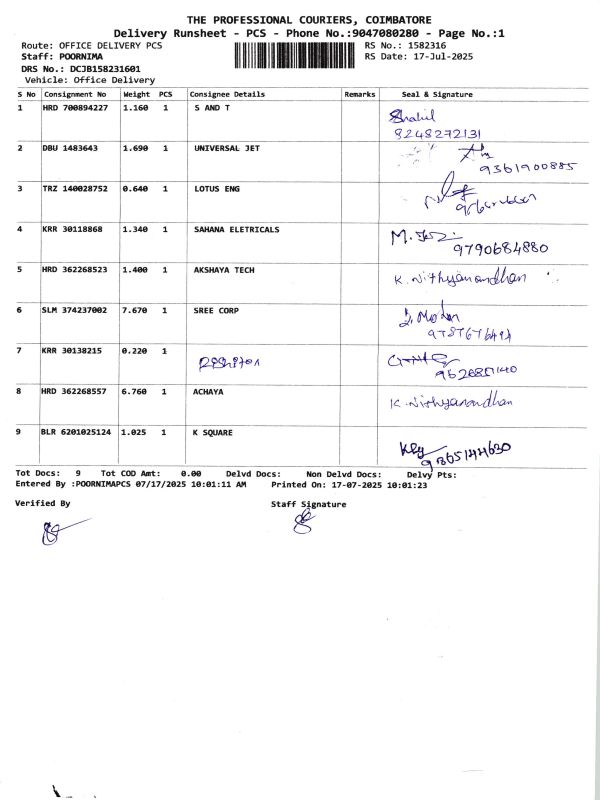 THE PROFESSIONAL COURIERS, COIMBATORE
Delivery Runsheet - PCS - Phone No.:9047080280 - Page No.:1
Route: OFFICE DELIVERY PCS RS No.: 1582316
Staff: POORNIMA RS Date: 17-Jul-2025
DRS No.: DCJB158231601
Vehicle: Office Delivery
S No Consignment No Weight PCS Consignee Details Remarks Seal & Signature
1 HRD 700894227 1.160 1 S AND T
8248272131
2 DBU 1483643 1.690 1 UNIVERSAL JET
9361900885
3 TRZ 140028752 0.640 1 LOTUS ENG
4 KRR 30118868 1.340 1 SAHANA ELETRICALS
9790684880
5 HRD 362268523 1.400 1 AKSHAYA TECH
K. Nithyanandhan
6 SLM 374237002 7.670 1 SREE CORP
7 KRR 30138215 0.220 1
8 HRD 362268557 6.760 1 ACHAYA
K. Nithyanandhan
9 BLR 6201025124 1.025 1 K SQUARE
9865144630
Tot Docs: 9 Tot COD Amt: 0.00 Delvd Docs: Non Delvd Docs: Delvy Pts:
Entered By :POORNIMAPCS 07/17/2025 10:01:11 AM Printed On: 17-07-2025 10:01:23
Verified By Staff Signature